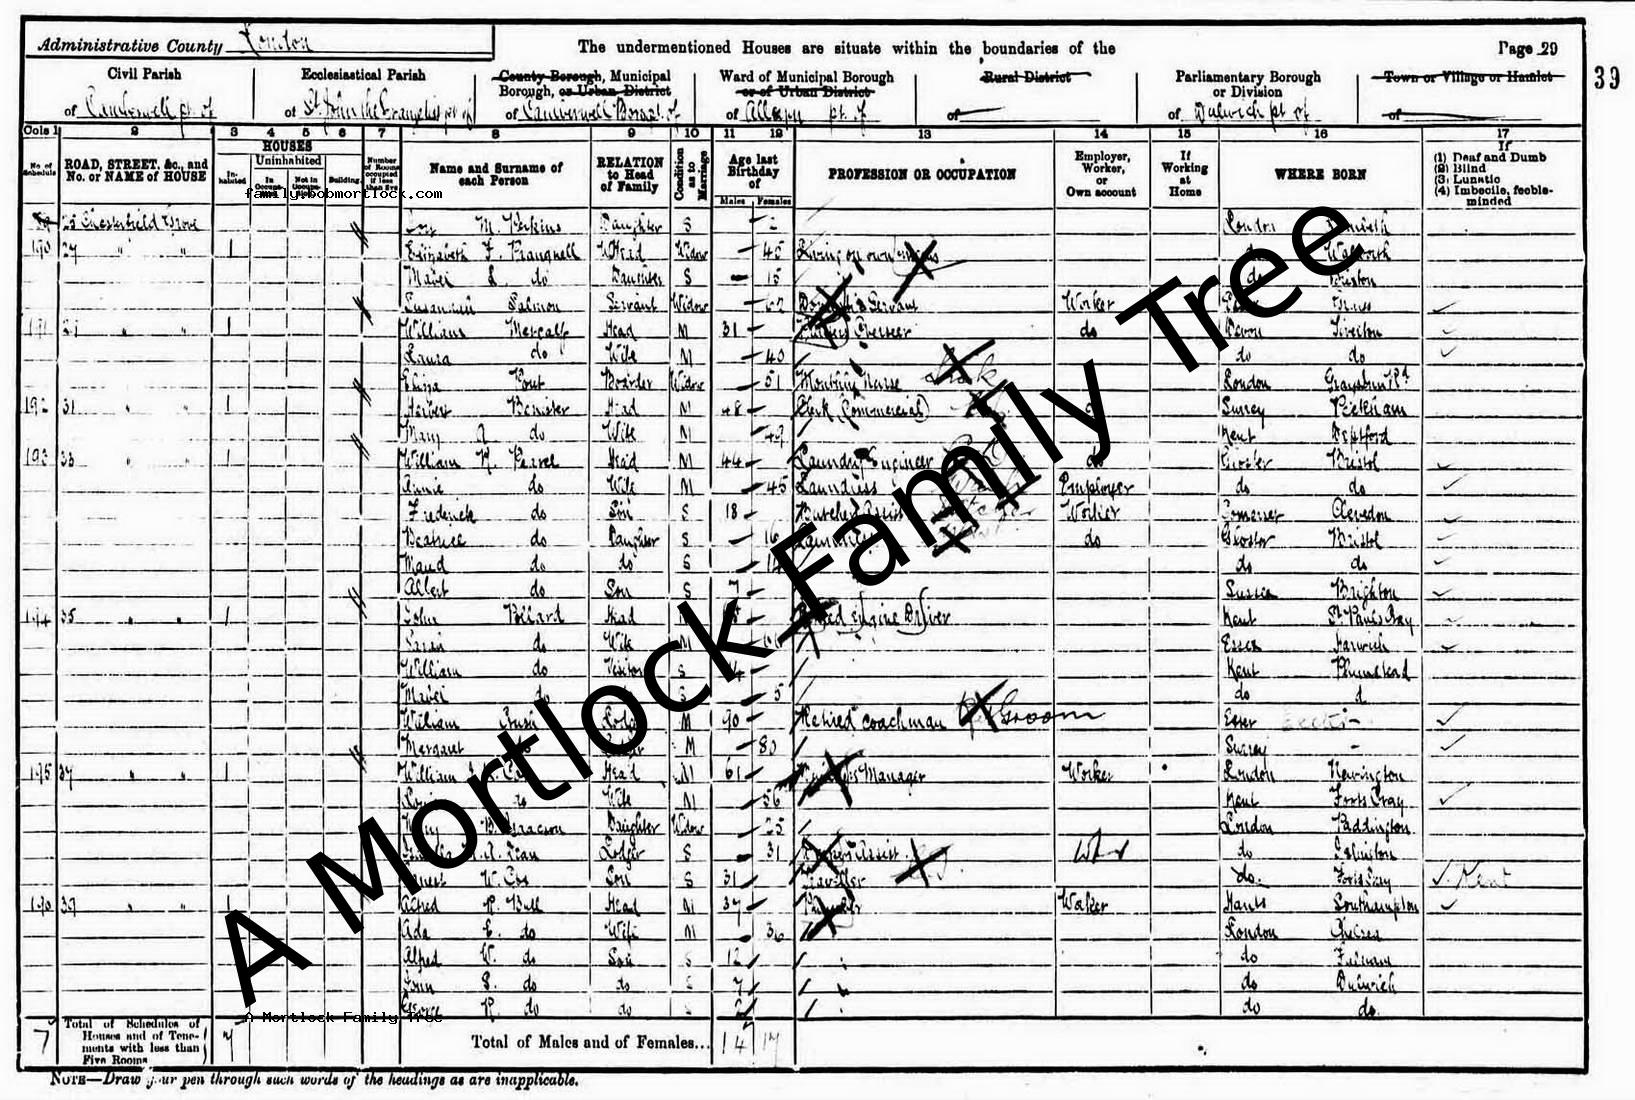 Administrative County London
The undermentioned Houses are situate within the boundaries of the
Page 29
39
Civil Parish
of Camberwell pt of
Ecclesiastical Parish
of St John the Evangelist pt of
County Borough, Municipal
Borough, or Urban District
of Camberwell Boro. of
Ward of Municipal Borough
or of Urban District
of Alleyn pt. of
Rural District
of
Parliamentary Borough
or Division
of Dulwich pt of
Town or Village or Hamlet
of
Cols 1 2 3 4 5 6 7 8 9 10 11 12 13 14 15 16 17
No. of Schedule
ROAD, STREET, &c., and
No. or NAME of HOUSE
HOUSES
Inhabited
Uninhabited
In Occupation
Not in Occupation
Building
Number of Rooms occupied if less than five
Name and Surname of
each Person
RELATION
to Head
of Family
Condition as to Marriage
Age last
Birthday
of
Males Females
PROFESSION OR OCCUPATION
Employer,
Worker,
or
Own account
If
Working
at
Home
WHERE BORN
If
(1) Deaf and Dumb
(2) Blind
(3) Lunatic
(4) Imbecile, feeble-
minded
family@bobmortlock.com
25 Chesterfield Grove M. Perkins Daughter S 2 London Lambeth
190 27 " " 1 Elizabeth F. Prangnell Head Widow 45 Living on own means do Walworth
Mabel L do Daughter S 15 do Brixton
Salmon Servant Widow 62 Domestic Servant Worker
191 29 " " 1 William Metcalf Head M 31 Checker do Devon Tiverton
Laura do Wife M 40 do do
Eliza Pout Boarder Widow 51 Monthly Nurse London Graysinn Rd
192 31 " " 1 Herbert Banister Head M 48 Clerk (Commercial) Surrey Peckham
Mary A do Wife M 49 Kent Deptford
193 33 " " 1 William H. Head M 44 Laundry Engineer do Gloster Bristol
Annie do Wife M 45 Laundress Employer do do
Frederick do Son S 18 Butchers Assist Worker Somerset Clevedon
Beatrice do Daughter S 16 do Gloster Bristol
Maud do do S do do
Albert do Son S 7 Sussex Brighton
194 35 " " 1 John Pollard Head Retired Engine Driver Kent St Pauls Cray
Sarah do Wife M Essex Harwich
William do Visitor S Kent Plumstead
do S 5 do
William M 90 Retired coachman Groom Essex
Margaret M 80 Surrey
195 37 " " 1 William Head M 61 Manager Worker London Newington
do Wife M 56 Kent Foots Cray
Isaacson Daughter Widow 25 London Paddington
Lodger S 31 Assist. do Islington
Ernest W. Cox Son S 31 Traveller do. Foots Cray Kent
196 39 " " 1 Alfred R. Bull Head M 37 Worker Hants Southampton
Ada E. do Wife M 36 London Chelsea
Alfred W. do Son S 12 do Fulham
John S. do do S 7 do Dulwich
George R. do do S do do.
7
Total of Schedules of
Houses and of Tene-
ments with less than
Five Rooms
7
Total of Males and of Females... 14 17
NOTE—Draw your pen through such words of the headings as are inapplicable.
A Mortlock Family Tree
A Mortlock Family Tree